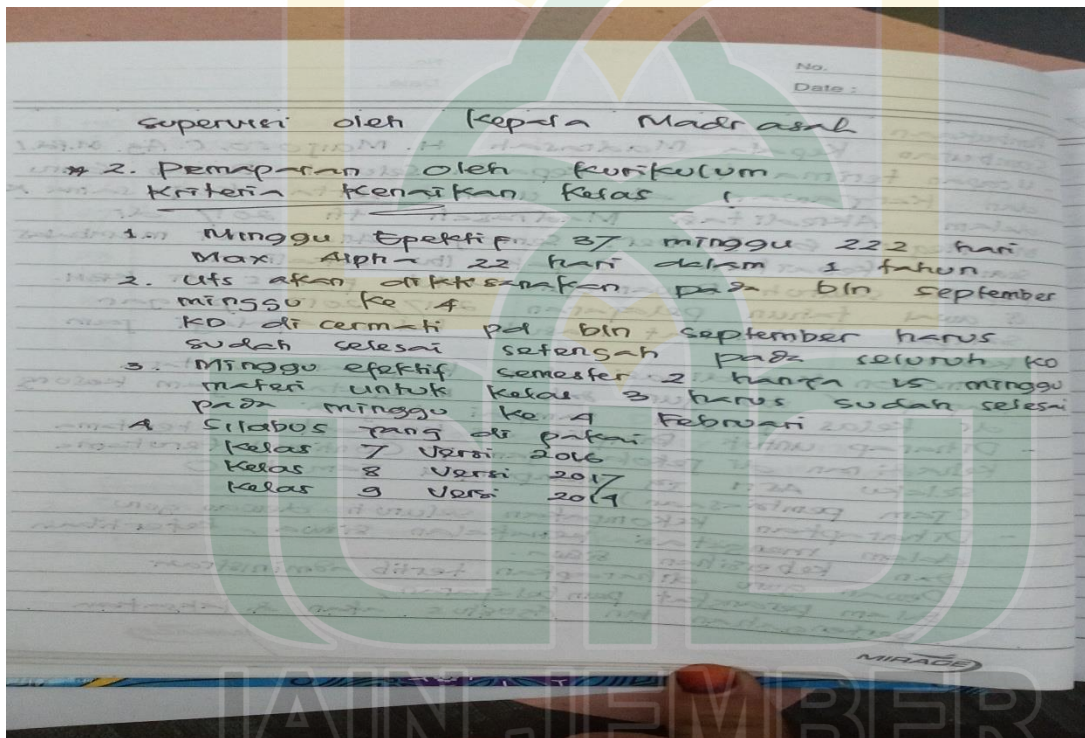 No.
Date :
Supervisi oleh Kepala Madrasah
2. Pemaparan oleh Kurikulum
Kriteria Kenaikan Kelas :
1. Minggu Epektif 37 minggu 222 hari
Max Alpha 22 hari dalam 1 tahun
2. Uts akan di pada bln September
minggu ke 4
KD di cermati pd bln September harus
sudah selesai setengah pada seluruh KD
3. Minggu efektif semester 2 hanya 15 minggu
materi untuk kelas 3 harus sudah selesai
pada minggu ke 4 Februari
4 Silabus yang di pakai
Kelas 7 versi 2016
Kelas 8 versi 2017
Kelas 9 versi
MIRAGE
IAIN JEMBER